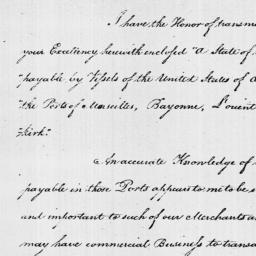 I have the Honor of transm
your Excellency herewith enclosed "a State of
payable by Vessels of the United States of A
the Ports of Marseilles, Bayonne, L'orient
kirk."
An accurate Knowledge of
payable in those Ports appears to me to be
and important to such of our Merchants a
may have commercial Business to transa